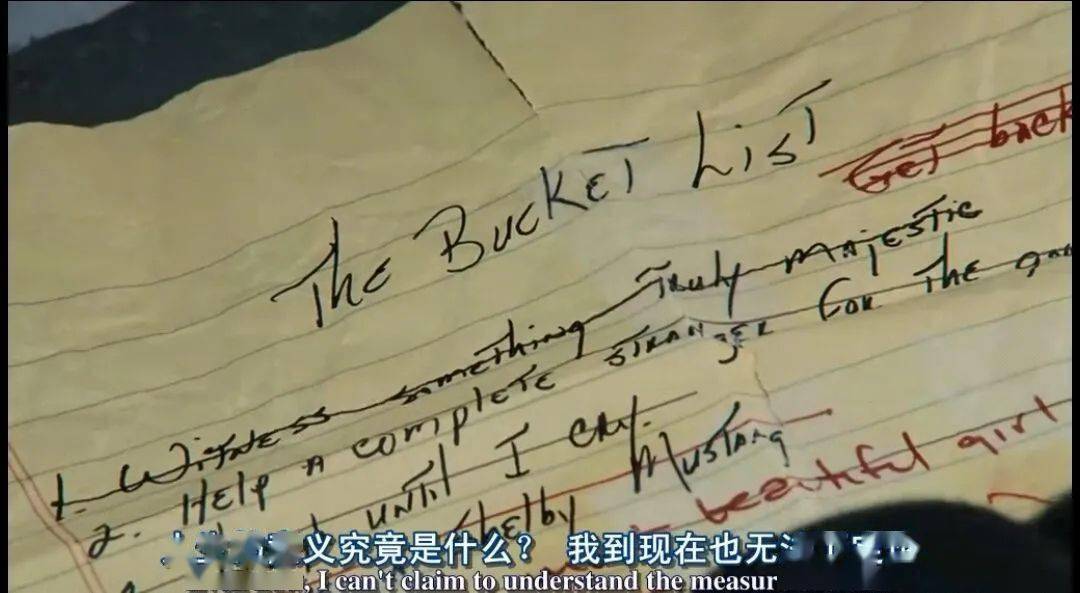 The Bucket List
Get back
1. Witness something truly majestic
2. Help a complete stranger for the
until I cry.
Shelby Mustang
beautiful girl
义究竟是什么? 我到现在也无
, I can't claim to understand the measur